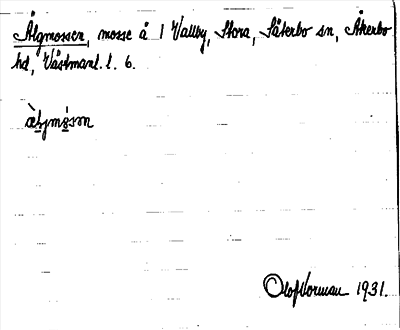 Älgmossen, mosse å 1 Vallby, Stora, Säterbo sn, Åkerbo
hd, Västmanl. l. 6.
Olof Norman 1931.